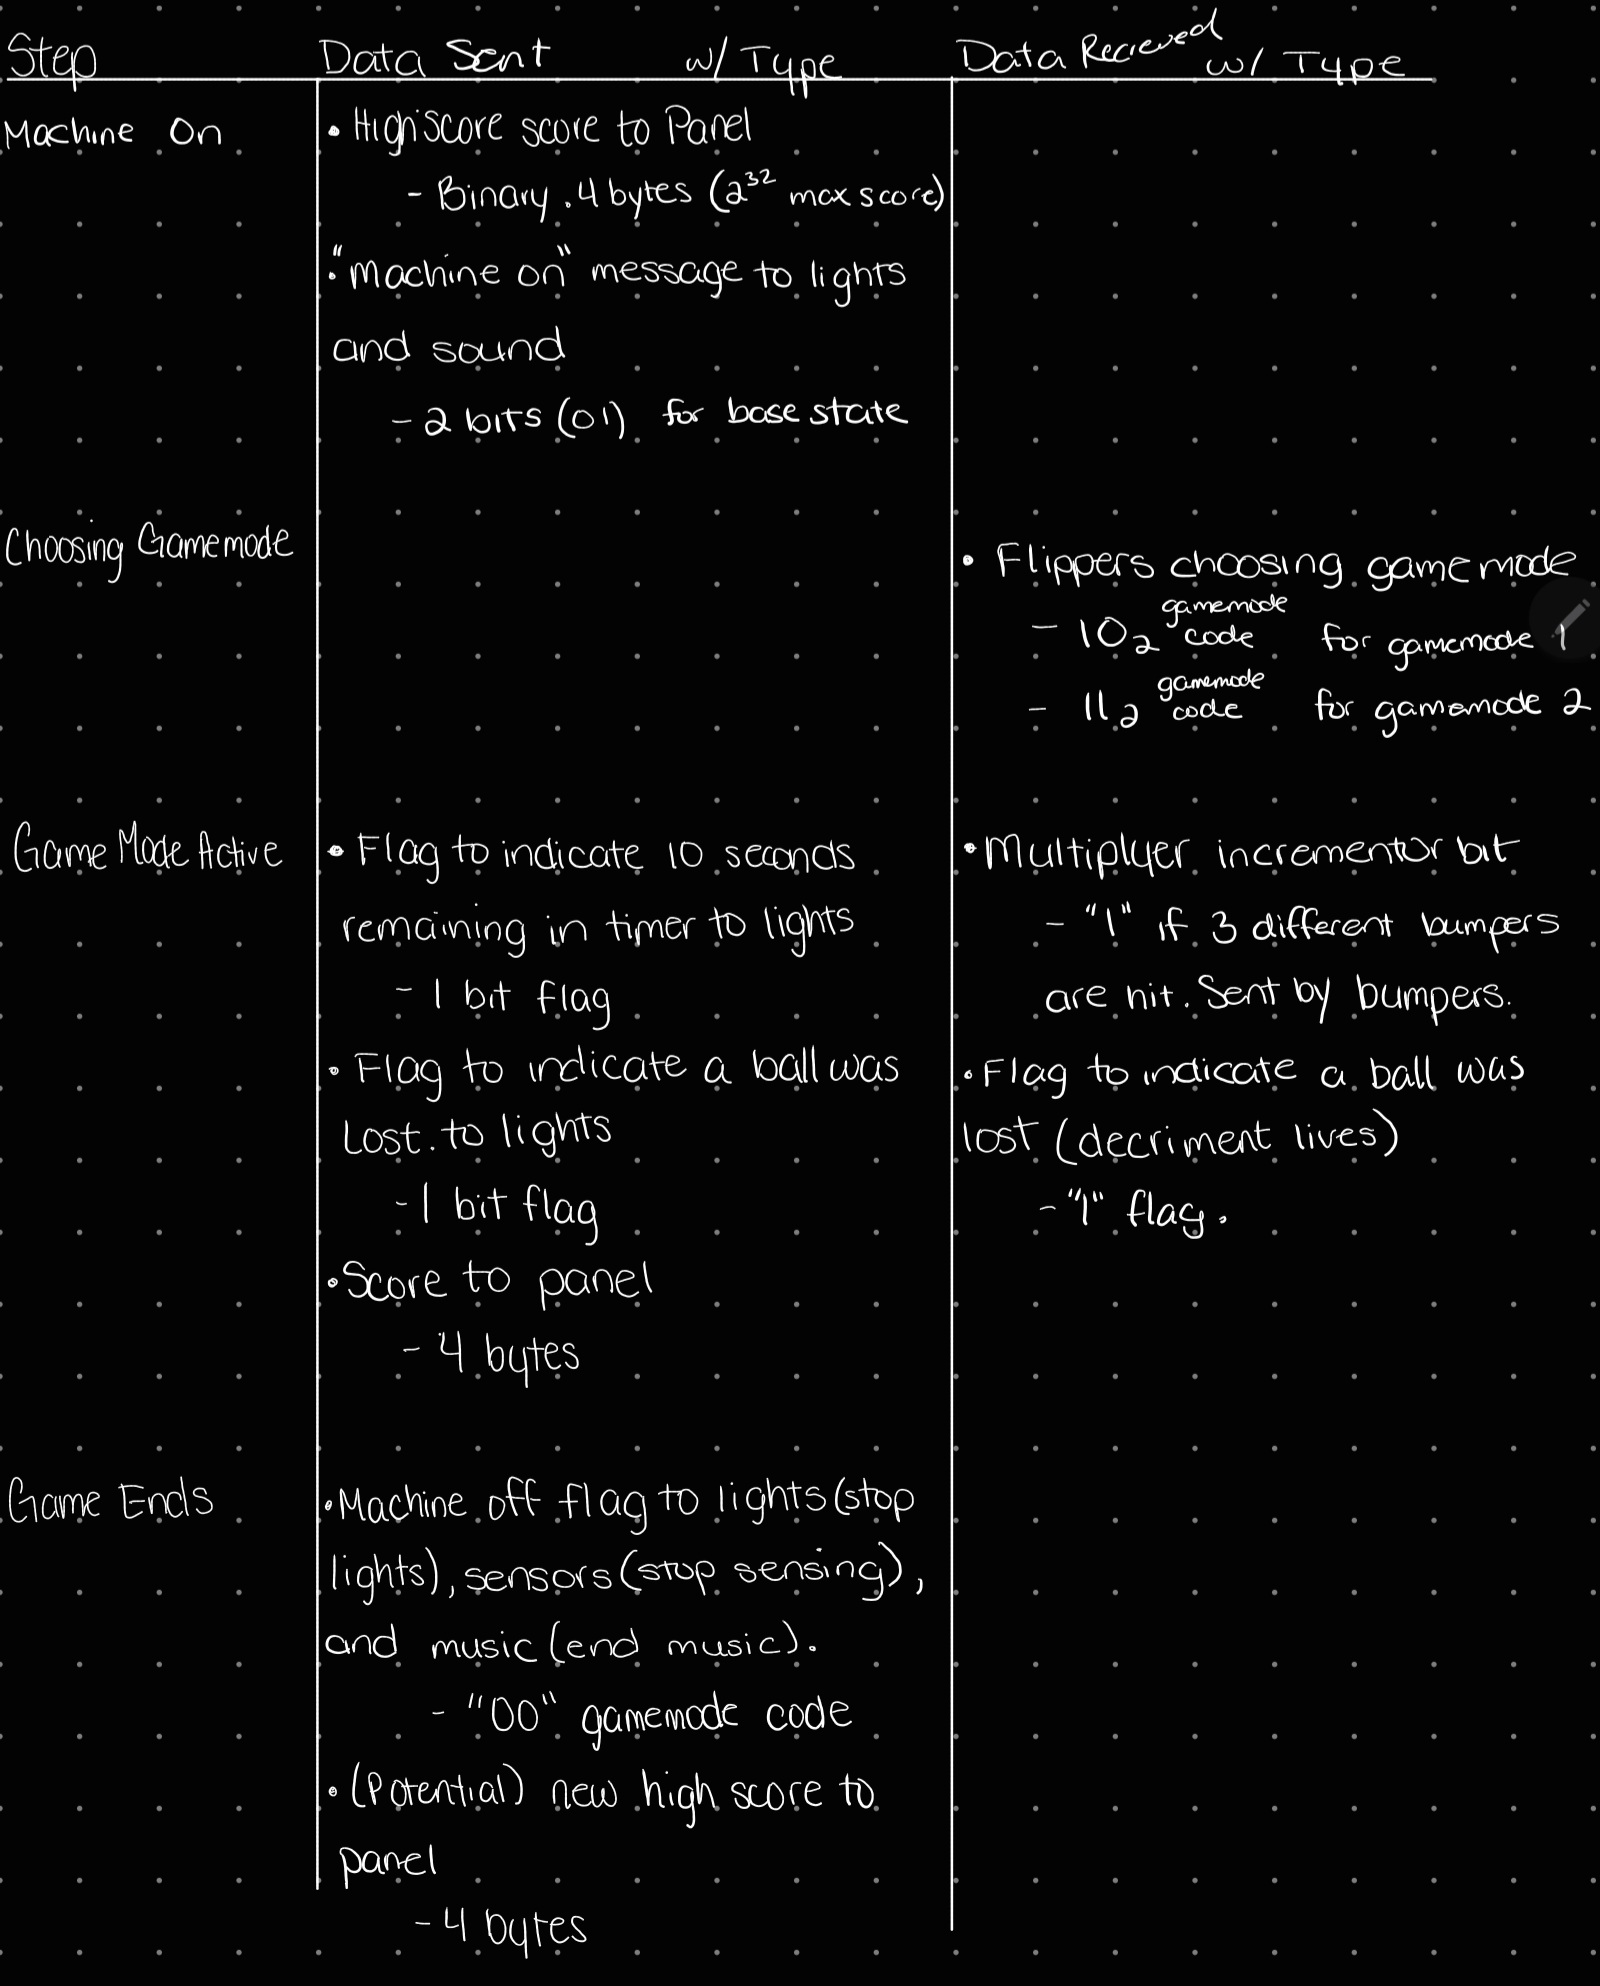 Step
Data Sent w/ Type
Data Recieved w/ Type
Machine On
• Highscore score to Panel
- Binary. 4 bytes (2³² max score)
• "machine on" message to lights
and sound
- 2 bits (01) for base state
Choosing Gamemode
• Flippers choosing gamemode
- 10₂ gamemode code for gamemode 1
- 11₂ gamemode code for gamemode 2
Game Mode Active
• Flag to indicate 10 seconds
remaining in timer to lights
- 1 bit flag
• Flag to indicate a ball was
Lost. to lights
- 1 bit flag
• Score to panel
- 4 bytes
• Multiplyer incrementor bit
- "1" if 3 different bumpers
are hit. Sent by bumpers.
• Flag to indicate a ball was
lost (decriment lives)
- "1" flag.
Game Ends
• Machine off flag to lights (stop
lights), sensors (stop sensing),
and music (end music).
- "00" gamemode code
• (Potential) new high score to
panel
- 4 bytes